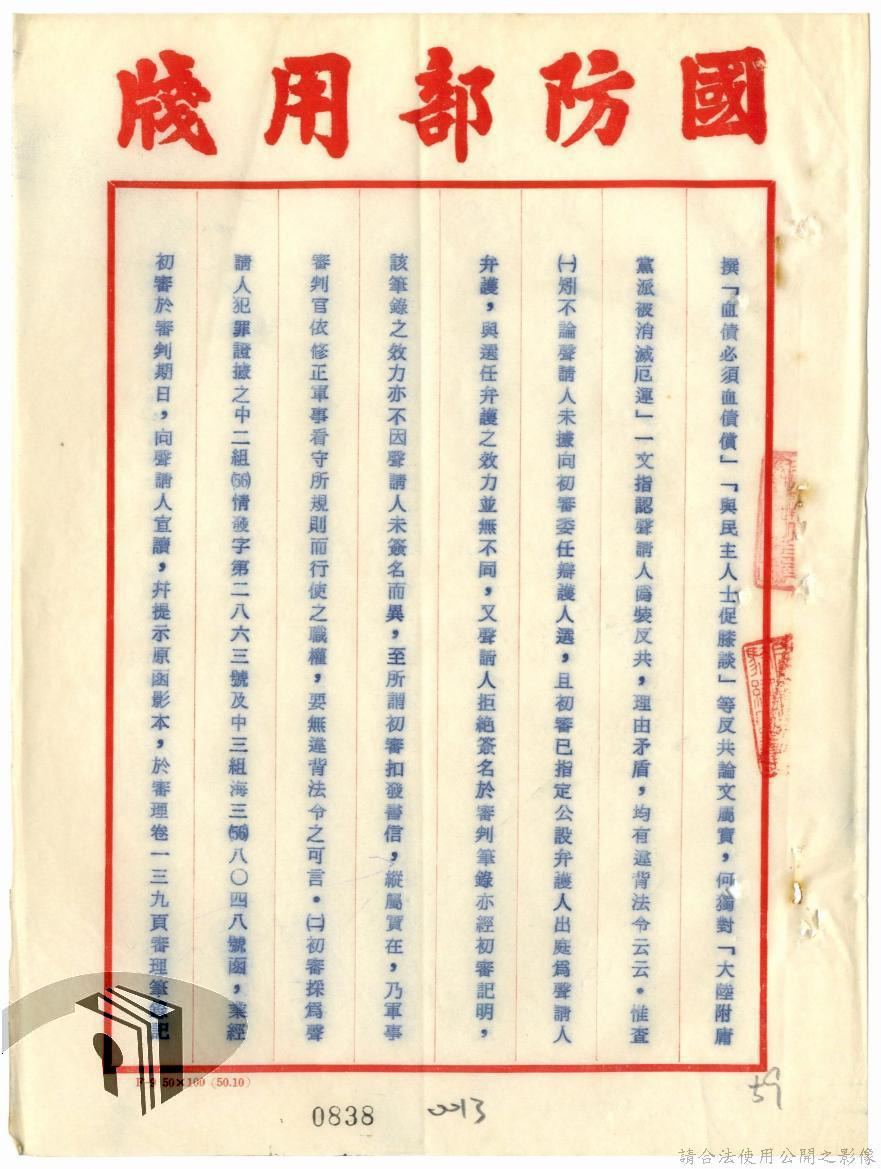 國防部用牋
撰「血債必須血債償」「與民主人士促膝談」等反共論文屬實，何獨對「大陸附庸
黨派被消滅厄運」一文指認聲請人偽裝反共，理由矛盾，均有違背法令云云。惟查
㈠矧不論聲請人未據向初審委任辯護人選，且初審已指定公設弁護人出庭為聲請人
弁護，與選任弁護之效力並無不同，又聲請人拒絕簽名於審判筆錄亦經初審記明，
該筆錄之效力亦不因聲請人未簽名而異，至所謂初審扣發書信，縱屬實在，乃軍事
審判官依修正軍事看守所規則而行使之職權，要無違背法令之可言。㈡初審採為聲
請人犯罪證據之中二組(56)情發字第二八六三號及中三組海三(56)八〇四八號函，業經
初審於審判期日，向聲請人宣讀，幷提示原函影本，於審理卷一三九頁審理筆錄記
F-9 50×100 (50.10)
0838
0013
59
請合法使用公開之影像